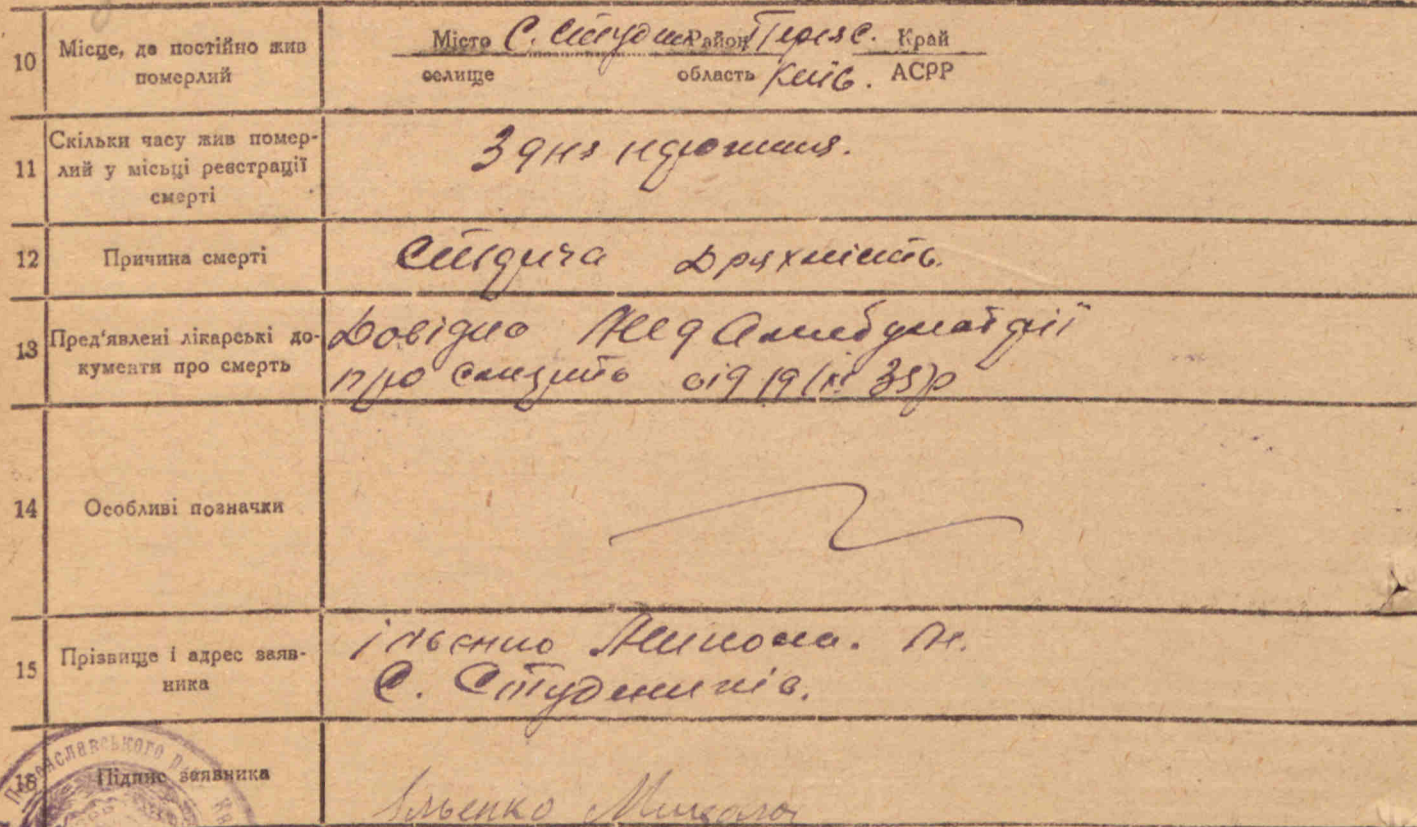 10 Місце, де постійно жив померлий
Місто С. Студен Район Переяс. Край
селище область Київ. АСРР
11 Скільки часу жив помер-
лий у місьці реєстрації
смерті
З дня
12 Причина смерті
Старича Дряхлість
13 Пред'явлені лікарські до-
кументи про смерть
Довідка Мед Амбулаторії
про смерть від 19
14 Особливі позначки
15 Прізвище і адрес заяв-
ника
Ільєнко Микола. М.
С. Студеників.
16 Підпис заявника
Ільенко Микола
Переяславського